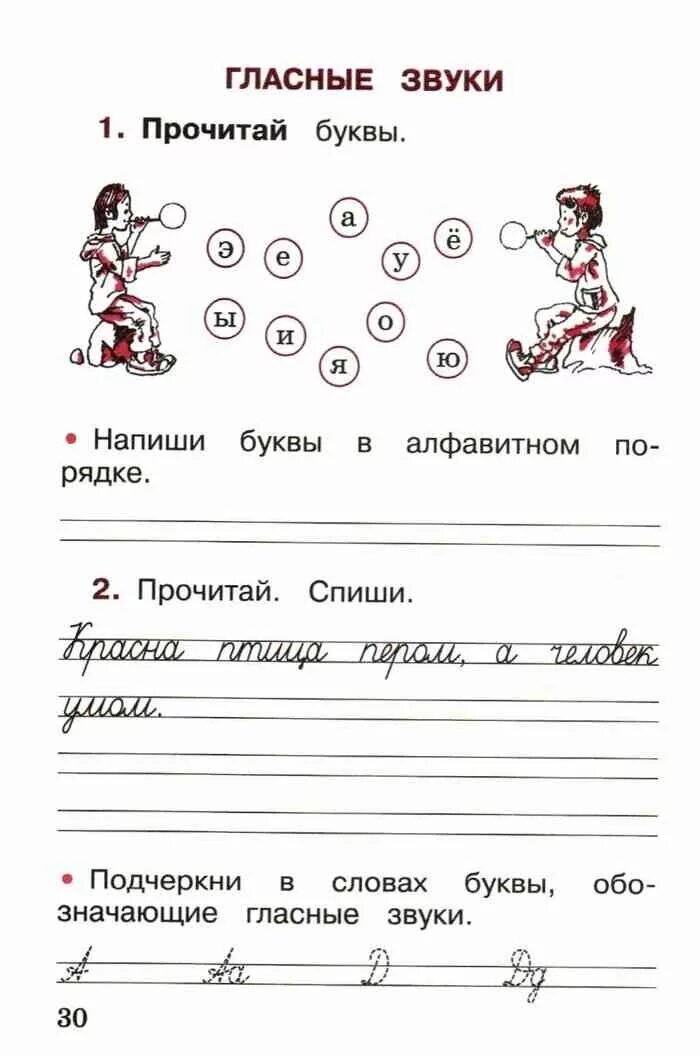 ГЛАСНЫЕ ЗВУКИ
1. Прочитай буквы.
э е а у ё
ы и я о ю
• Напиши буквы в алфавитном по-
рядке.
2. Прочитай. Спиши.
Красна птица пером, а человек
умом.
• Подчеркни в словах буквы, обо-
значающие гласные звуки.
А Аа D Dд
30